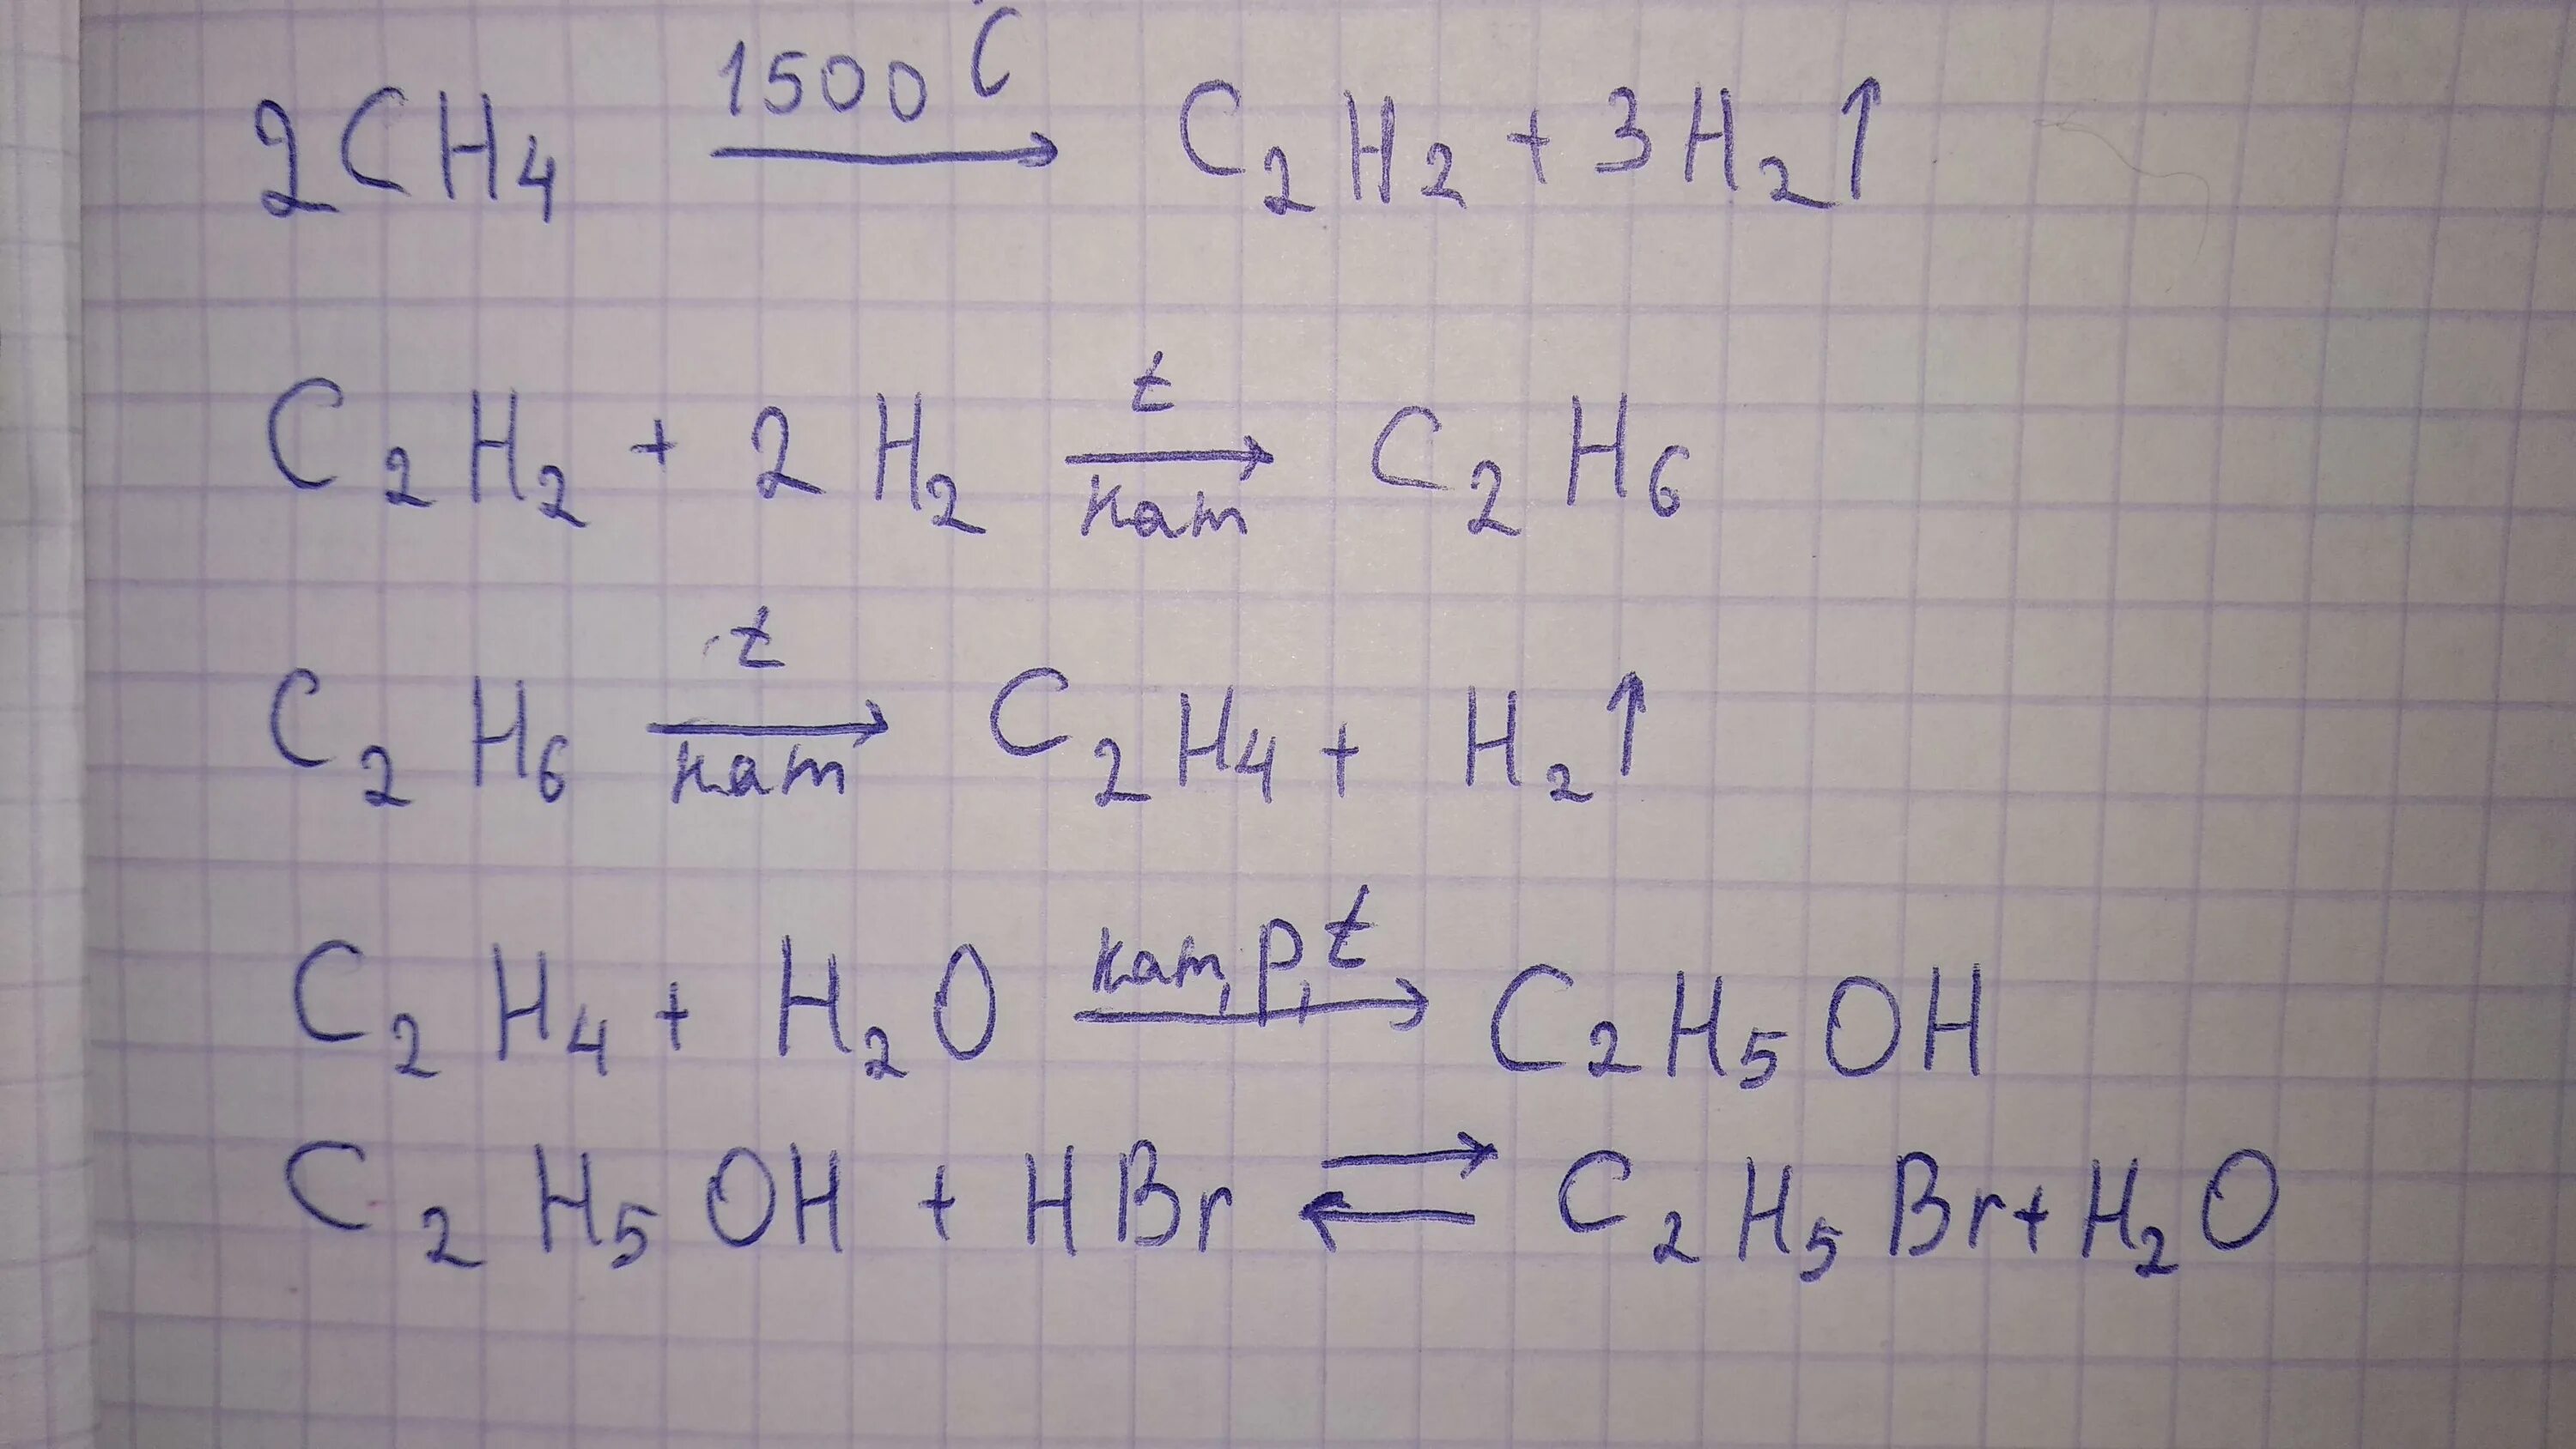 2CH₄ 1500°C → C₂H₂ + 3H₂↑
C₂H₂ + 2H₂ t → кат C₂H₆
C₂H₆ t → кат C₂H₄ + H₂↑
C₂H₄ + H₂O кат, p, t → C₂H₅OH
C₂H₅OH + HBr ⇄ C₂H₅Br + H₂O